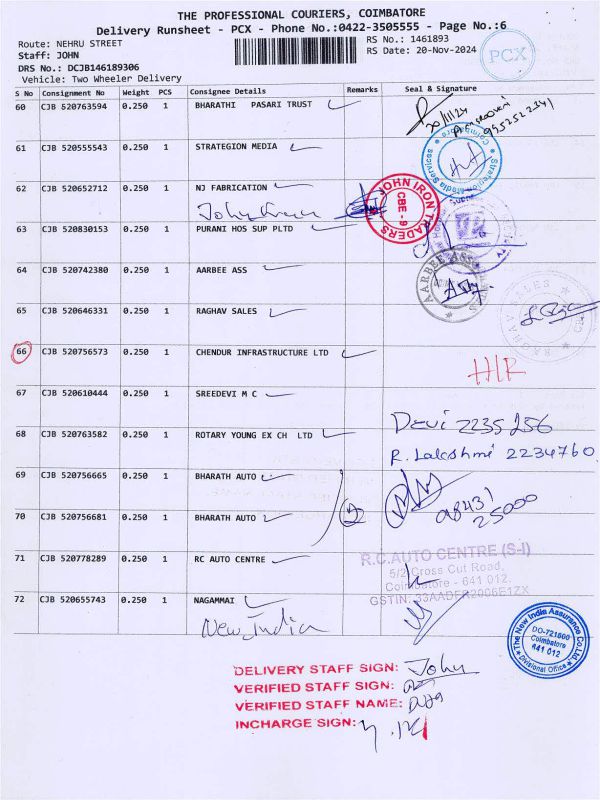 THE PROFESSIONAL COURIERS, COIMBATORE
Delivery Runsheet - PCX - Phone No.:0422-3505555 - Page No.:6
Route: NEHRU STREET
RS No.: 1461893
Staff: JOHN
RS Date: 20-Nov-2024
PCX
DRS No.: DCJB146189306
Vehicle: Two Wheeler Delivery
S No Consignment No Weight PCS Consignee Details Remarks Seal & Signature
60 CJB 520763594 0.250 1 BHARATHI PASARI TRUST
20/11/24
61 CJB 520555543 0.250 1 STRATEGION MEDIA
Coimbatore
62 CJB 520652712 0.250 1 NJ FABRICATION
JOHN IRON TRADERS
CBE - 9
63 CJB 520830153 0.250 1 PURANI HOS SUP PLTD
64 CJB 520742380 0.250 1 AARBEE ASS
AARBEE ASS
65 CJB 520646331 0.250 1 RAGHAV SALES
RAGHAV SALES
66 CJB 520756573 0.250 1 CHENDUR INFRASTRUCTURE LTD
H/R
67 CJB 520610444 0.250 1 SREEDEVI M C
Devi 2235256
68 CJB 520763582 0.250 1 ROTARY YOUNG EX CH LTD
R. Lakshmi 2234760
69 CJB 520756665 0.250 1 BHARATH AUTO
70 CJB 520756681 0.250 1 BHARATH AUTO
2
98431
25000
71 CJB 520778289 0.250 1 RC AUTO CENTRE
R.C.AUTO CENTRE (S-I)
5/2 Cross Cut Road,
Coimbatore - 641 012.
72 CJB 520655743 0.250 1 NAGAMMAI
New India
The New India Assurance Co.Ltd
DO-721600
Coimbatore
641 012
Divisional Office
DELIVERY STAFF SIGN: John
VERIFIED STAFF SIGN:
VERIFIED STAFF NAME:
INCHARGE SIGN: